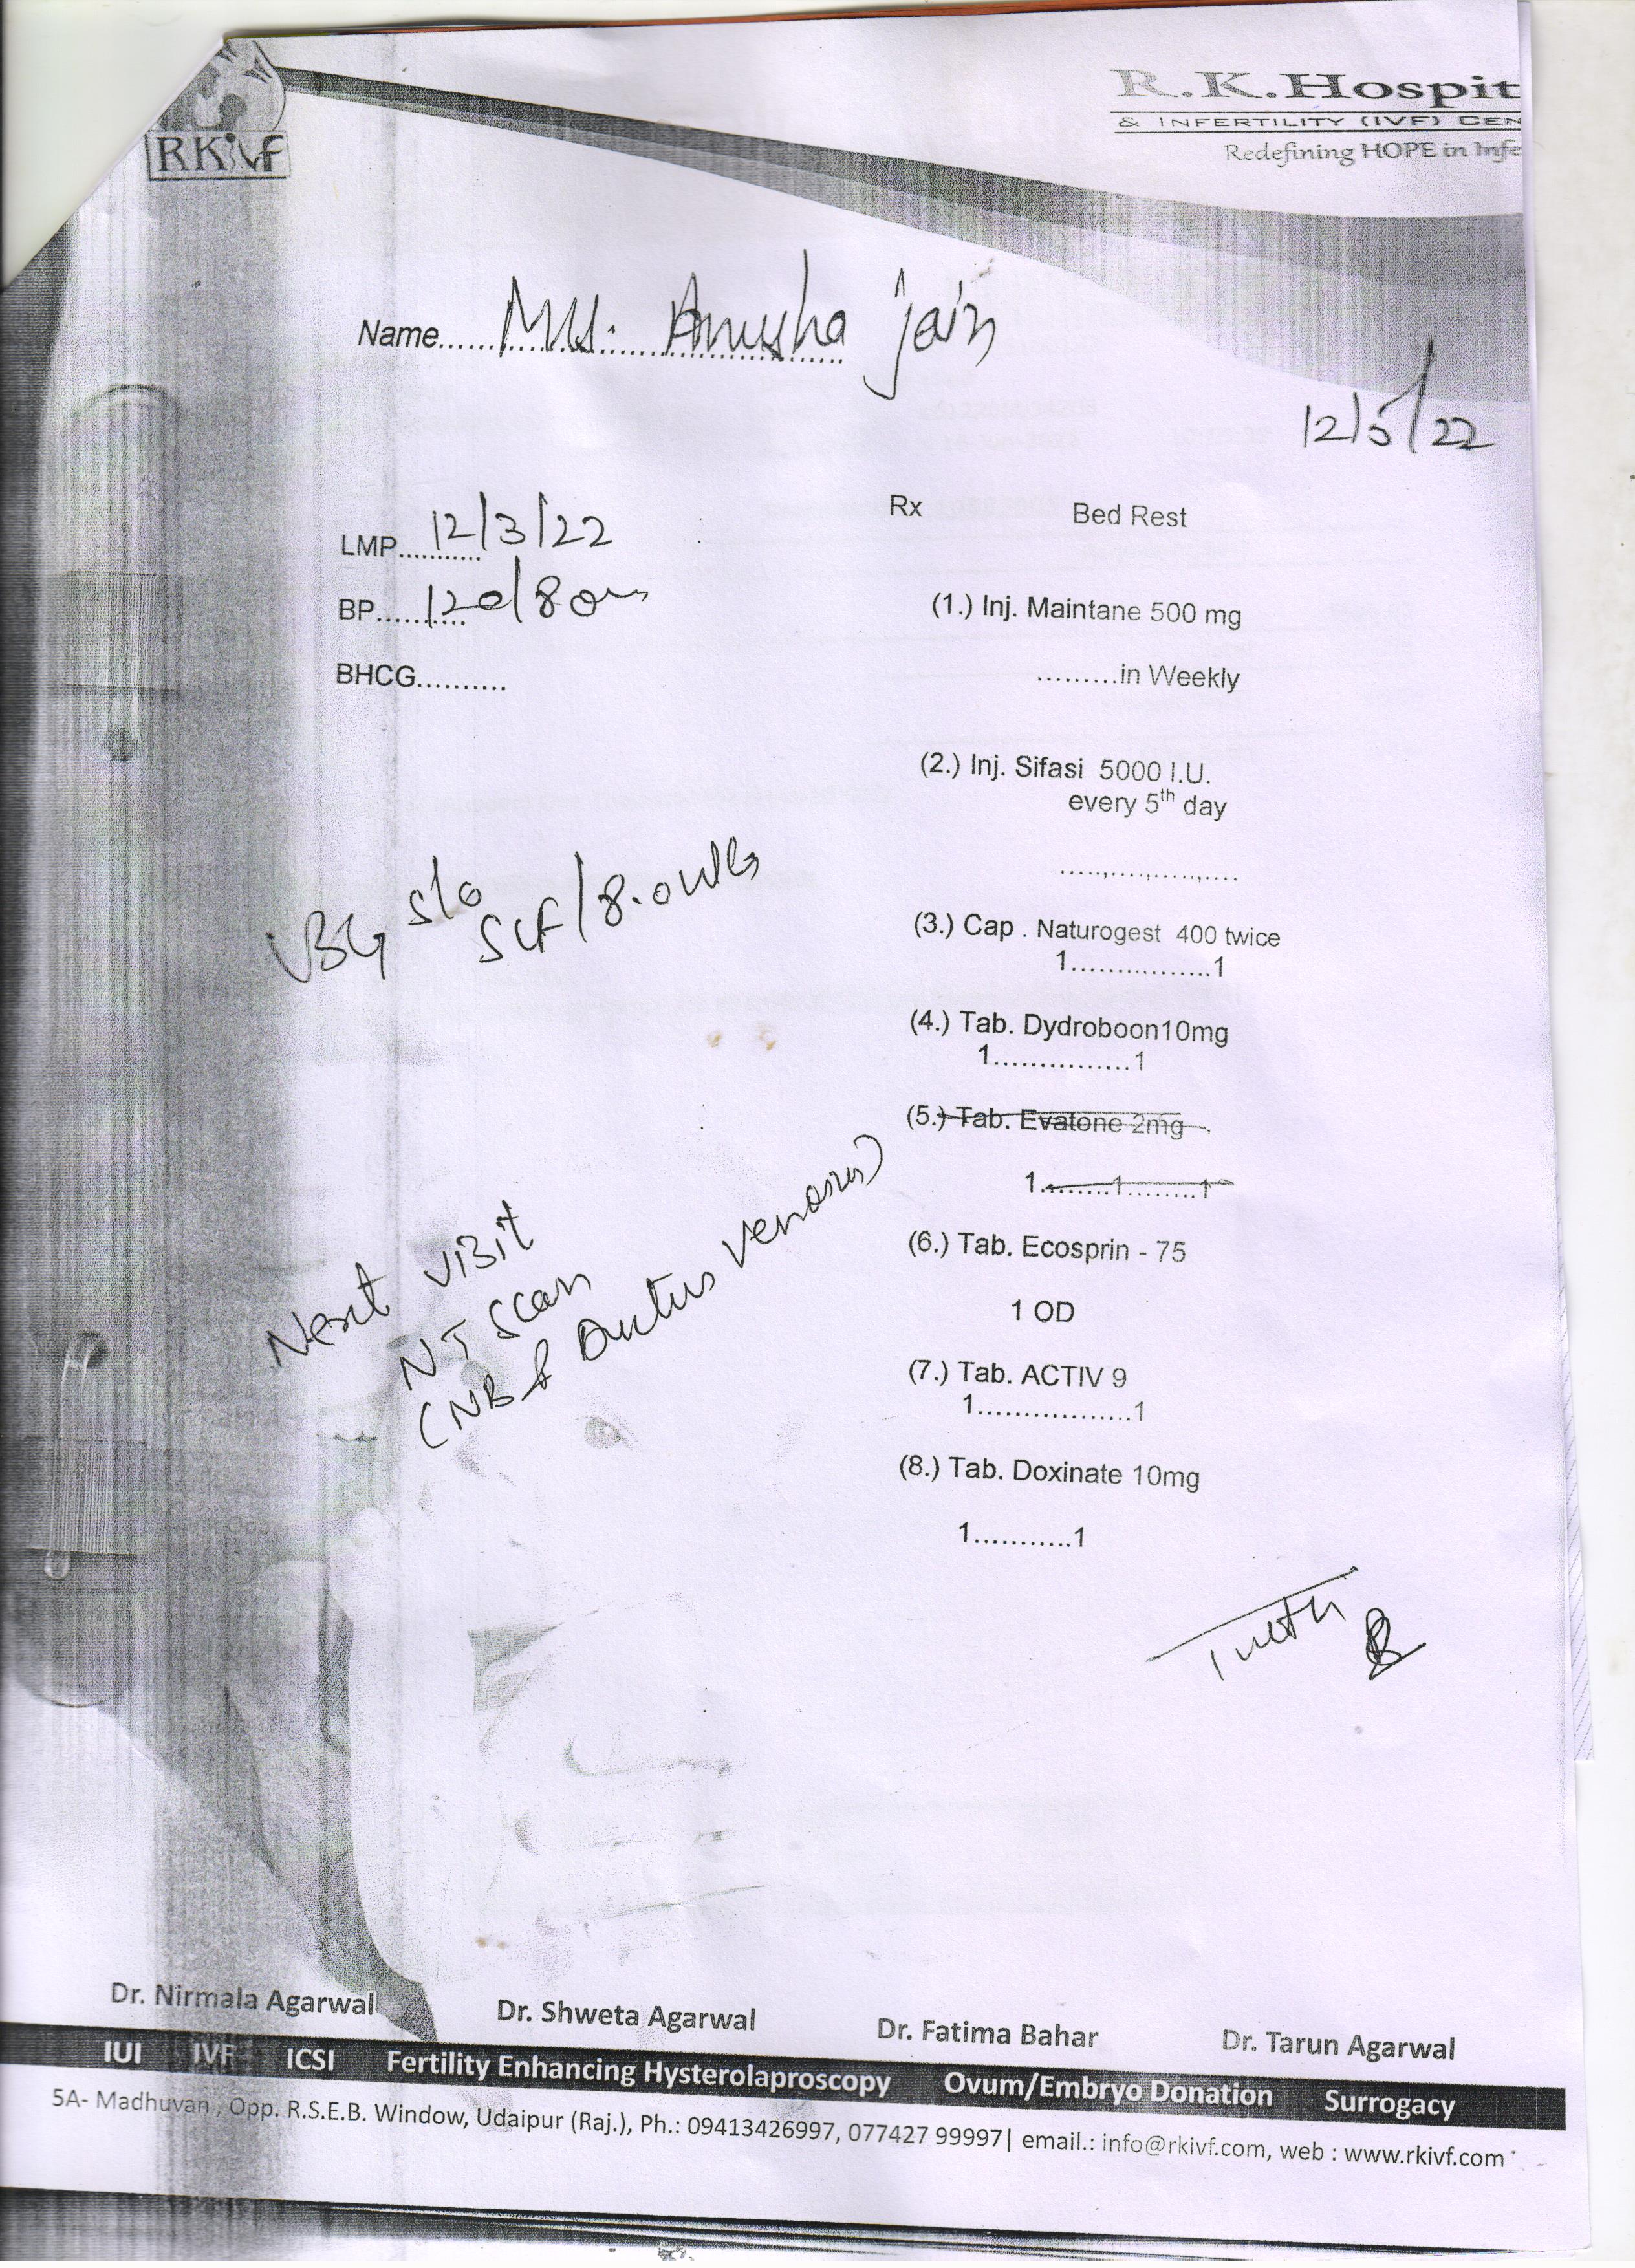 RKivf
R.K.Hospit
& INFERTILITY (IVF) CEN
Redefining HOPE in Infe
Name.......... Mrs. Anusha jain
12/5/22
LMP........... 12/3/22
BP........... 120/80
BHCG..........
Rx Bed Rest
(1.) Inj. Maintane 500 mg
.........in Weekly
(2.) Inj. Sifasi 5000 I.U.
every 5th day
....................
(3.) Cap . Naturogest 400 twice
1................1
(4.) Tab. Dydroboon10mg
1...............1
(5.) Tab. Evatone 2mg
1........1........1
(6.) Tab. Ecosprin - 75
1 OD
(7.) Tab. ACTIV 9
1.................1
(8.) Tab. Doxinate 10mg
1...........1
s/o
SLF/8.0wks
Next visit
NT Scan
(NB & Ductus venosus)
Dr. Nirmala Agarwal Dr. Shweta Agarwal Dr. Fatima Bahar Dr. Tarun Agarwal
IUI IVF ICSI Fertility Enhancing Hysterolaproscopy Ovum/Embryo Donation Surrogacy
5A- Madhuvan , Opp. R.S.E.B. Window, Udaipur (Raj.), Ph.: 09413426997, 077427 99997| email.: info@rkivf.com, web : www.rkivf.com